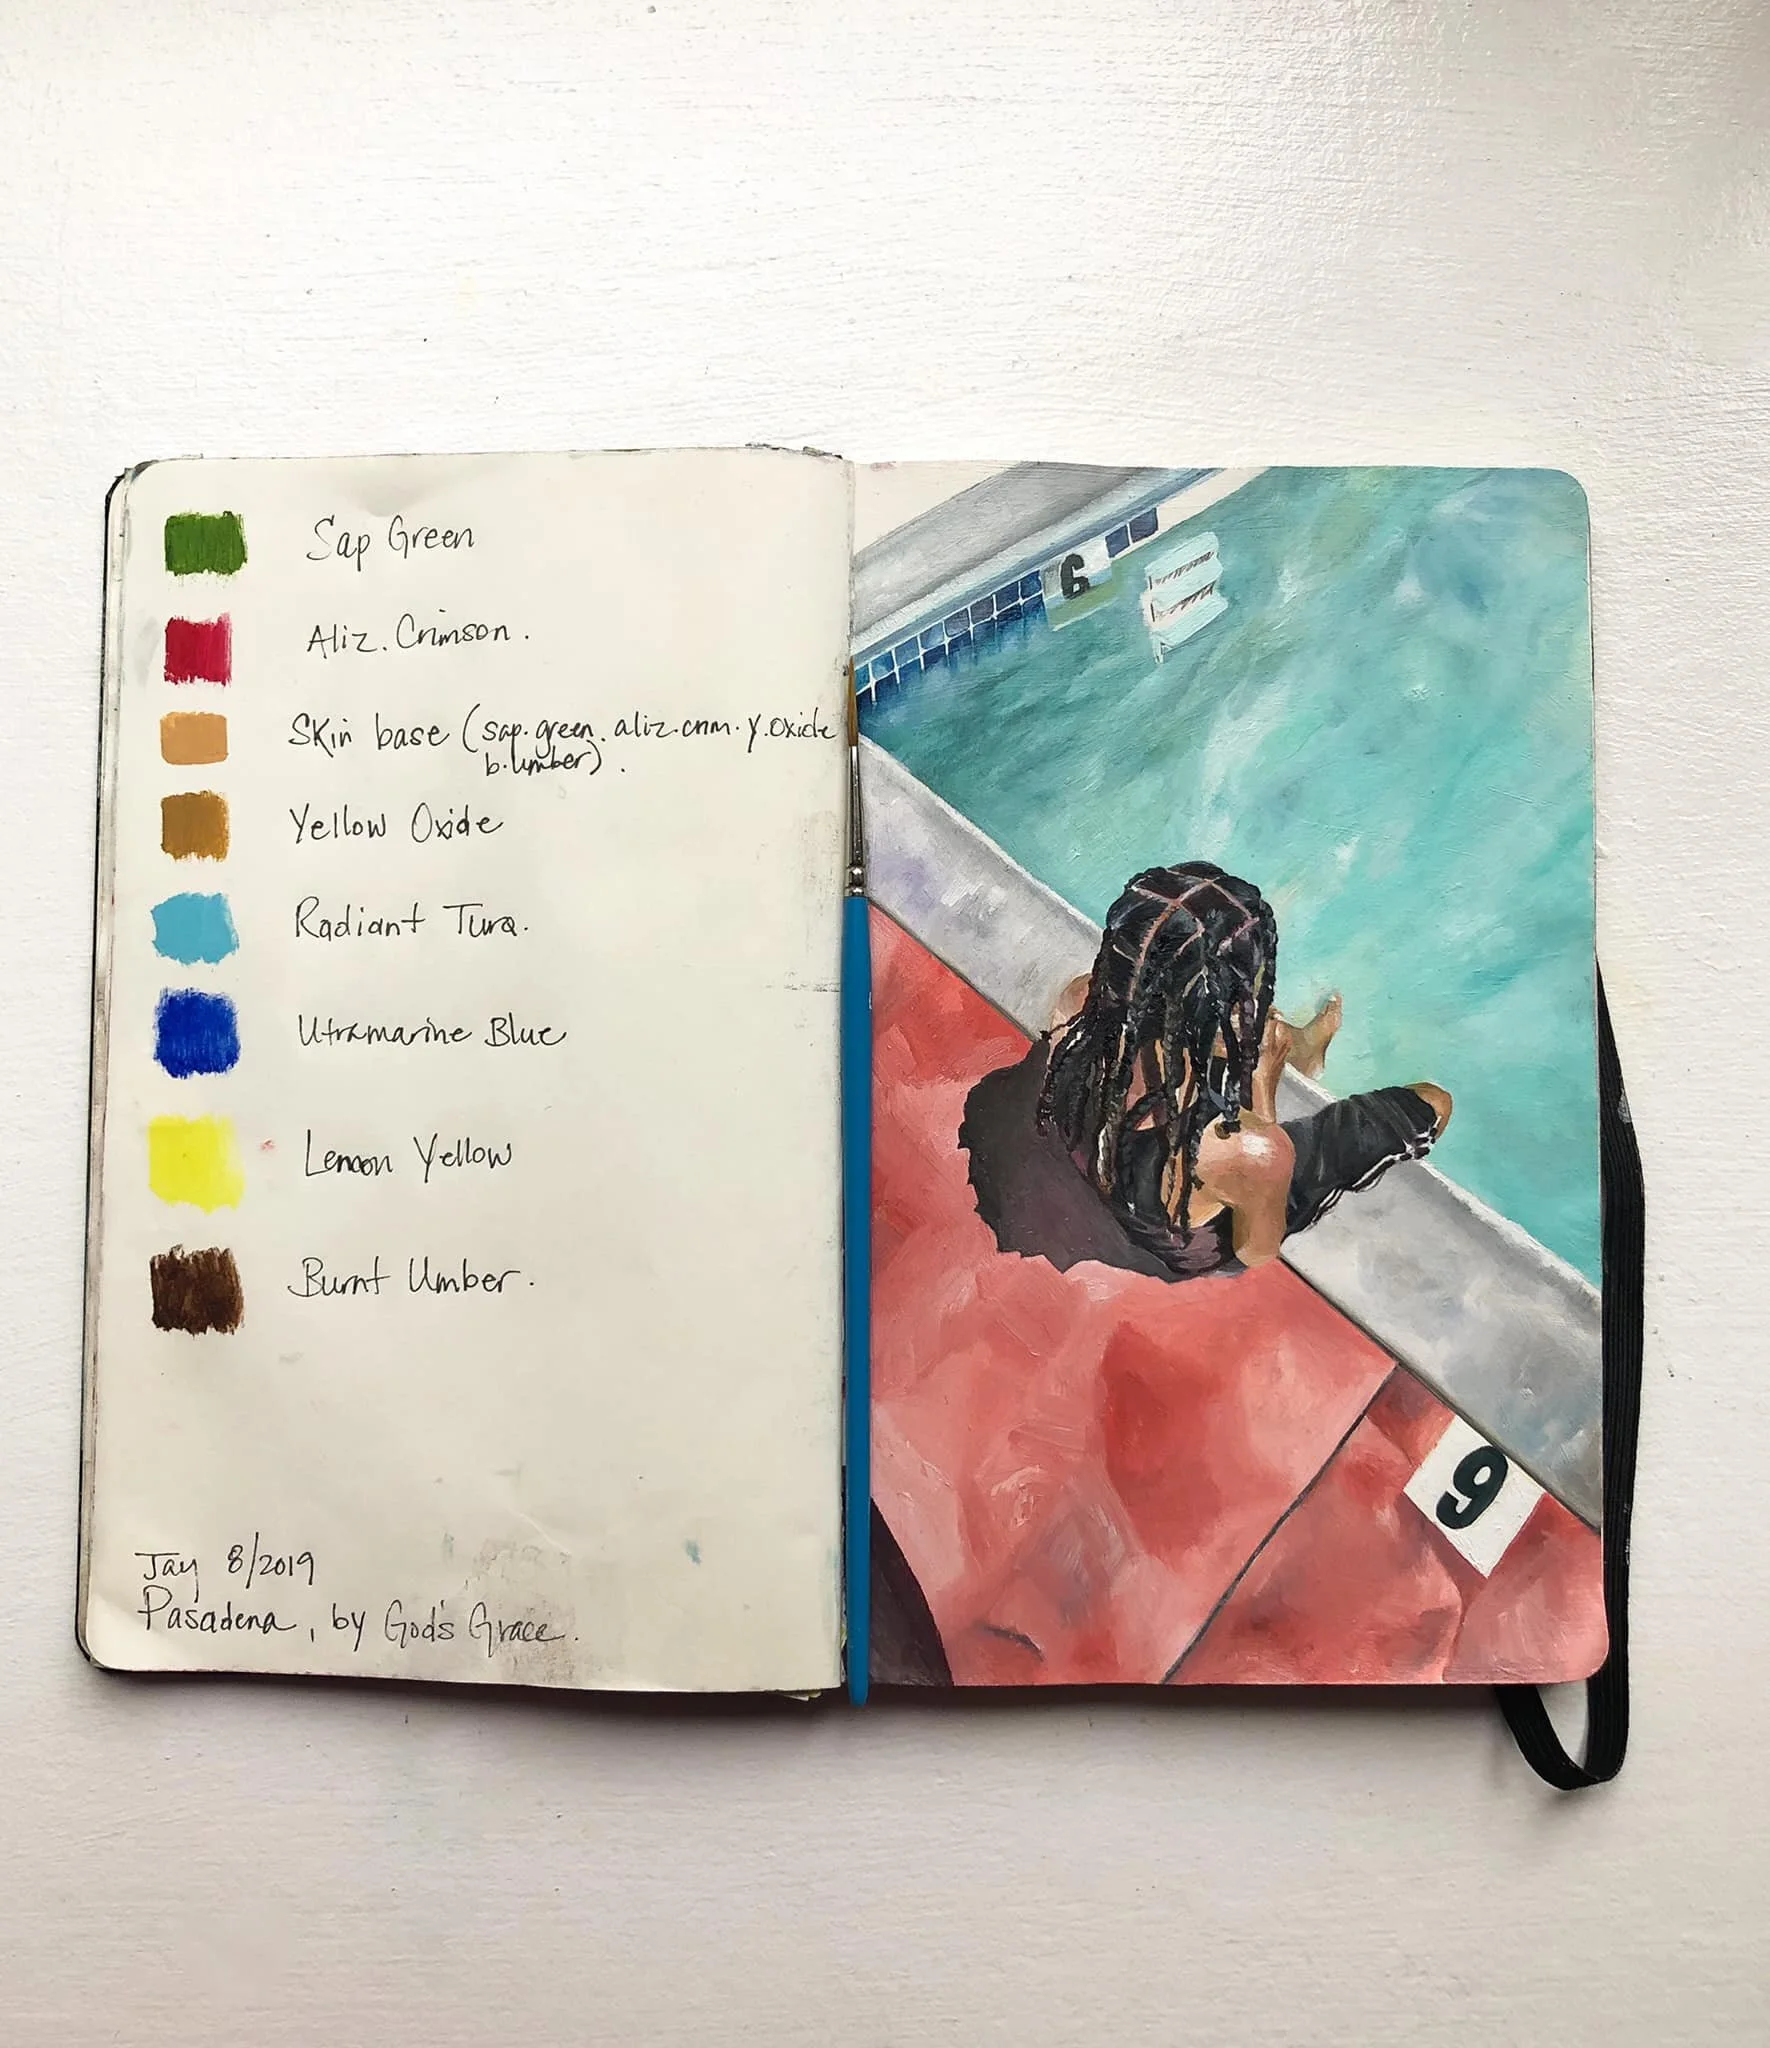 Sap Green
Aliz. Crimson.
Skin base (sap.green.aliz.crim.y.oxide
b.umber).
Yellow Oxide
Radiant Turq.
Utramarine Blue
Lemon Yellow
Burnt Umber.
Jay 8/2019
Pasadena, by God's Grace.
6
9